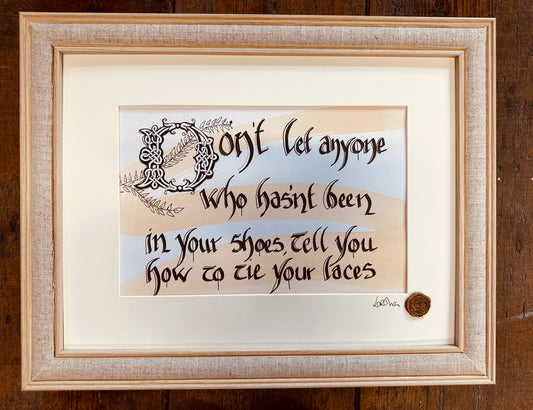 Don't let anyone
who has'nt been
in your shoes tell you
how to tie your laces